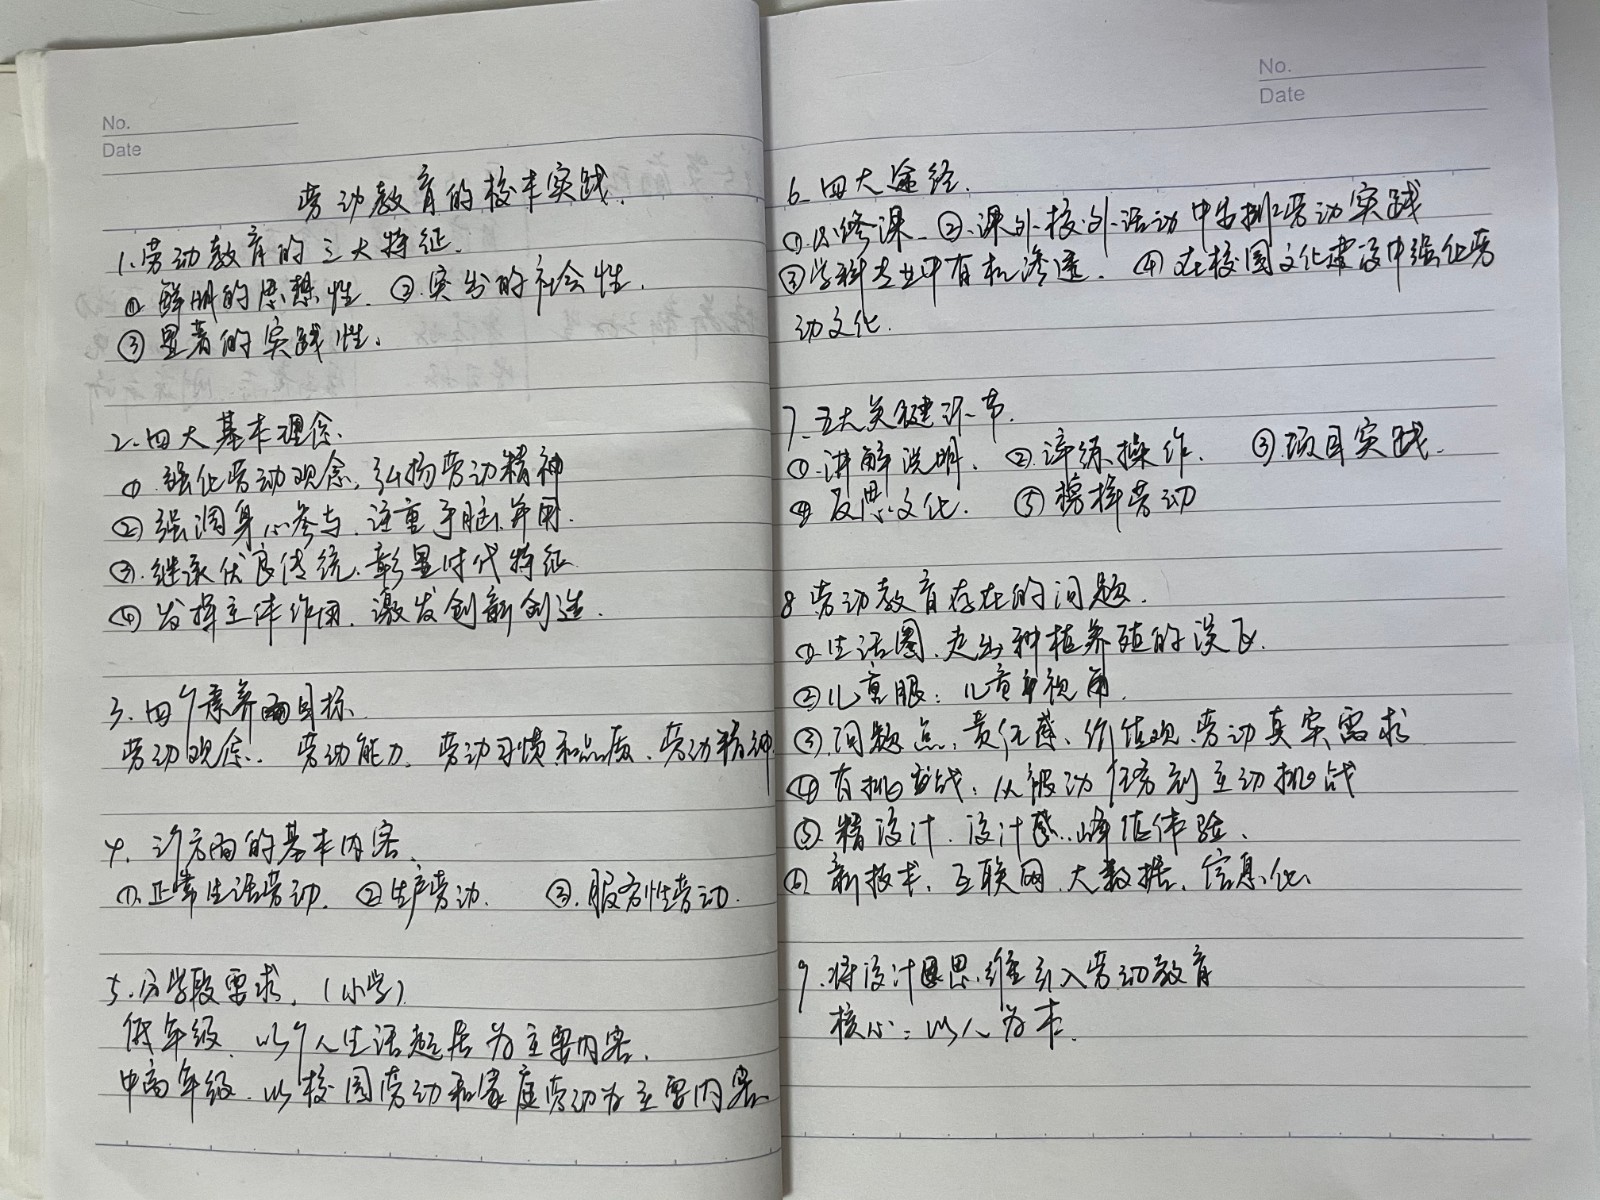 No.
Date
劳动教育的校本实践.
1.劳动教育的三大特征.
①鲜明的思想性. ②.突出的社会性.
③显著的实践性.
2.四大基本理念.
①.强化劳动观念,弘扬劳动精神
②强调身心参与.注重手脑并用.
③.继承优良传统.彰显时代特征
④发挥主体作用.激发创新创造.
3.四个素养目标
劳动观念. 劳动能力. 劳动习惯和品质.劳动精神.
4. 方面的基本内容.
①.正常生活劳动. ②生产劳动. ③.服务性劳动.
5.分学段要求.(小学)
低年级.以个人生活起居为主要内容.
中高年级.以校园劳动和家庭劳动为主要内容.
No.
Date
6.四大途径.
①.必修课. ②.课外校外活动中安排劳动实践
③学科专业中有机渗透. ④在校园文化建设中强化劳
动文化.
7.五大关键环节.
①.讲解说明. ②.淬练操作. ③.项目实践.
④反思文化. ⑤榜样劳动
8 劳动教育存在的问题.
①生活圈.走出种植养殖的误飞.
②儿童服:儿童视角.
③.问题点.责任感、价值观.劳动真实需求
④有挑战:从被动任务到主动挑战
⑤.精设计.设计 峰值体验.
⑥.新技术.互联网.大数据.信息化.
9.将设计思维引入劳动教育
核心:以人为本.